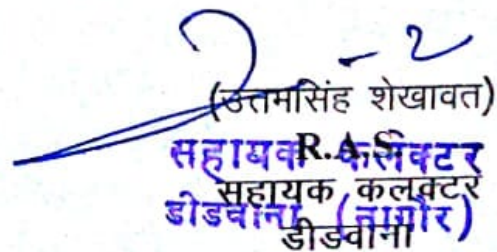 (उत्तमसिंह शेखावत)
R.A.S
सहायक कलक्टर
सहायक कलक्टर
डीडवाना (नागौर)
डीडवाना